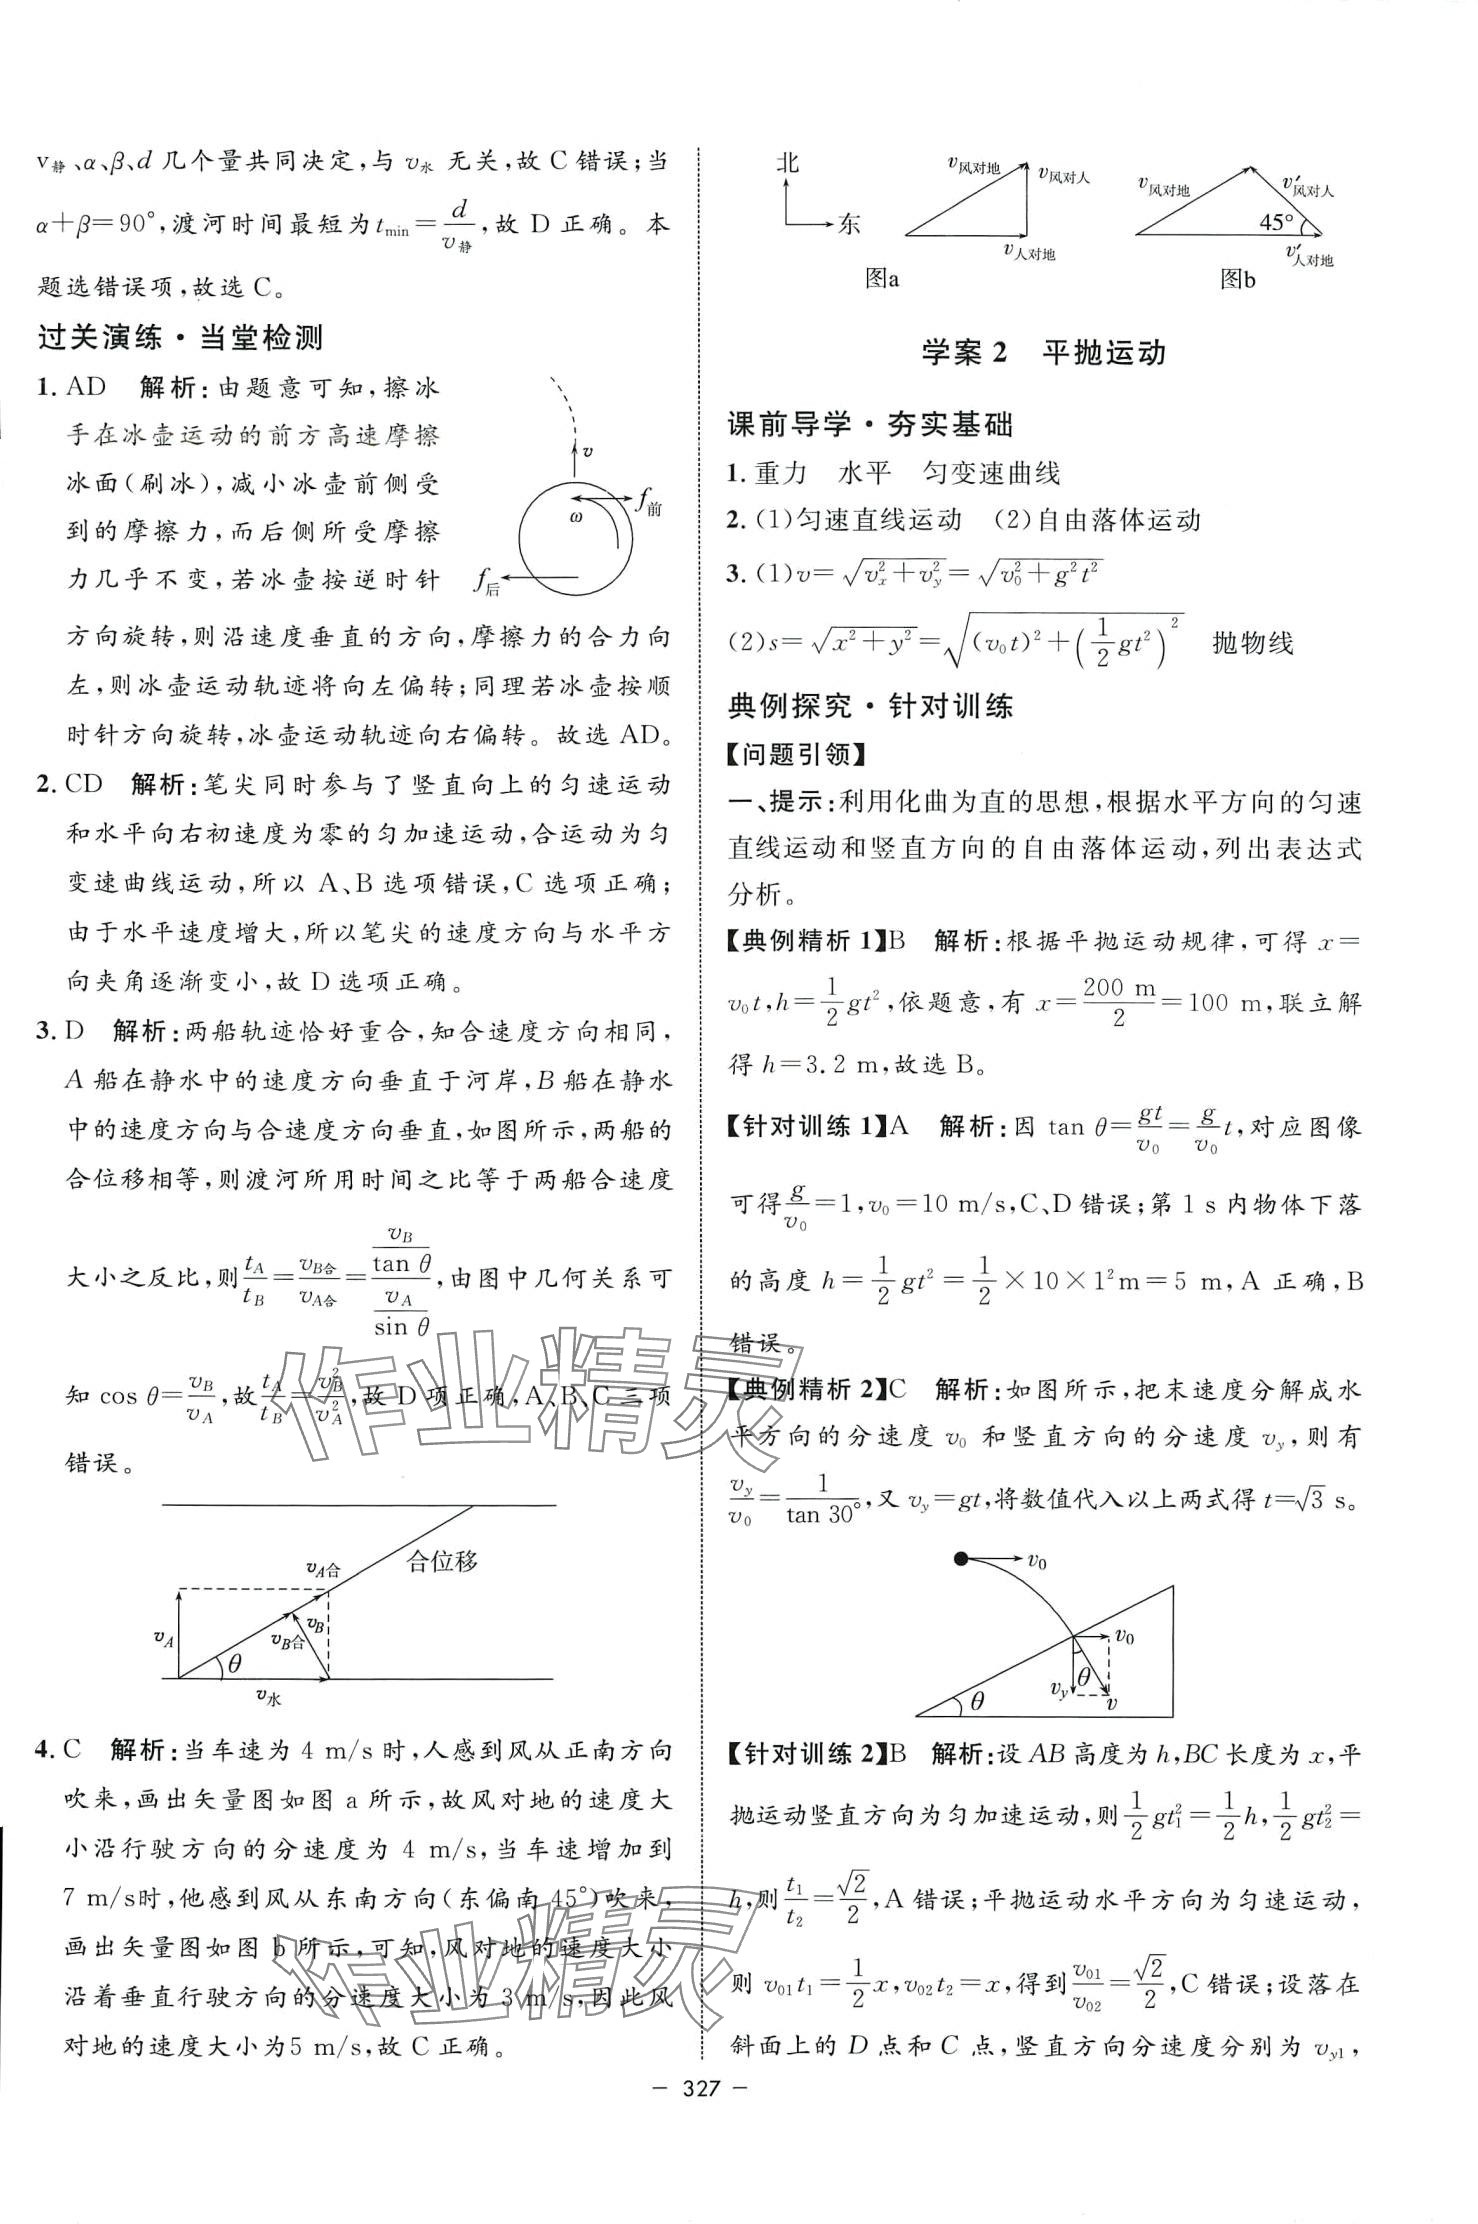 v静、α、β、d 几个量共同决定,与 v水 无关,故 C 错误;当
α+β=90°,渡河时间最短为 t_min=d/v静,故 D 正确。本
题选错误项,故选 C。
过关演练·当堂检测
1. AD 解析:由题意可知,擦冰
手在冰壶运动的前方高速摩擦
冰面(刷冰),减小冰壶前侧受
到的摩擦力,而后侧所受摩擦
力几乎不变,若冰壶按逆时针
v
ω
f前
f后
方向旋转,则沿速度垂直的方向,摩擦力的合力向
左,则冰壶运动轨迹将向左偏转;同理若冰壶按顺
时针方向旋转,冰壶运动轨迹向右偏转。故选 AD。
2. CD 解析:笔尖同时参与了竖直向上的匀速运动
和水平向右初速度为零的匀加速运动,合运动为匀
变速曲线运动,所以 A、B 选项错误,C 选项正确;
由于水平速度增大,所以笔尖的速度方向与水平方
向夹角逐渐变小,故 D 选项正确。
3. D 解析:两船轨迹恰好重合,知合速度方向相同,
A 船在静水中的速度方向垂直于河岸,B 船在静水
中的速度方向与合速度方向垂直,如图所示,两船的
合位移相等,则渡河所用时间之比等于两船合速度
大小之反比,则 t_A/t_B=v_B合/v_A合=(v_B/tan θ)/(v_A/sin θ),由图中几何关系可
知 cos θ=v_B/v_A,故 t_A/t_B=v_B²/v_A²,故 D 项正确,A、B、C 三项
错误。
v_A合
合位移
v_A
v_B合
v_B
θ
v水
4. C 解析:当车速为 4 m/s时,人感到风从正南方向
吹来,画出矢量图如图 a 所示,故风对地的速度大
小沿行驶方向的分速度为 4 m/s,当车速增加到
7 m/s时,他感到风从东南方向(东偏南 45°)吹来,
画出矢量图如图 b 所示,可知,风对地的速度大小
沿着垂直行驶方向的分速度大小为 3 m/s,因此风
对地的速度大小为5 m/s,故 C 正确。
北
东
v风对地
v风对人
v人对地
图a
v风对地
v′风对人
45°
v′人对地
图b
学案 2 平抛运动
课前导学·夯实基础
1. 重力 水平 匀变速曲线
2. (1)匀速直线运动 (2)自由落体运动
3. (1)v=√(v_x²+v_y²)=√(v_0²+g²t²)
(2)s=√(x²+y²)=√((v_0t)²+(1/2 gt²)²) 抛物线
典例探究·针对训练
【问题引领】
一、提示:利用化曲为直的思想,根据水平方向的匀速
直线运动和竖直方向的自由落体运动,列出表达式
分析。
【典例精析 1】B 解析:根据平抛运动规律,可得 x=
v_0t,h=1/2 gt²,依题意,有 x=200 m/2=100 m,联立解
得 h=3.2 m,故选 B。
【针对训练 1】A 解析:因 tan θ=gt/v_0=g/v_0 t,对应图像
可得 g/v_0=1,v_0=10 m/s,C、D 错误;第 1 s 内物体下落
的高度 h=1/2 gt²=1/2×10×1² m=5 m,A 正确,B
错误。
【典例精析 2】C 解析:如图所示,把末速度分解成水
平方向的分速度 v_0 和竖直方向的分速度 v_y,则有
v_y/v_0=1/tan 30°,又 v_y=gt,将数值代入以上两式得 t=√3 s。
v_0
v_0
v_y
θ
v
θ
【针对训练 2】B 解析:设 AB 高度为 h,BC 长度为 x,平
抛运动竖直方向为匀加速运动,则 1/2 gt_1²=1/2 h,1/2 gt_2²=
h,则 t_1/t_2=√2/2,A 错误;平抛运动水平方向为匀速运动,
则 v_01t_1=1/2 x,v_02t_2=x,得到 v_01/v_02=√2/2,C 错误;设落在
斜面上的 D 点和 C 点,竖直方向分速度分别为 v_y1,
— 327 —
作业精灵
作业精灵